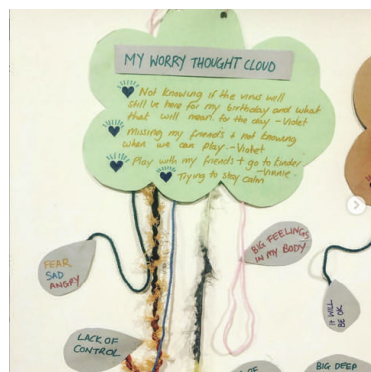 MY WORRY THOUGHT CLOUD
Not knowing if the virus will
still be here for my birthday and what
that will mean for the day - Violet
Missing my friends + not knowing
when we can play. - Violet
Play with my friends + go to kinder
- Vinnie.
Trying to stay calm
FEAR
SAD
ANGRY
BIG FEELINGS
IN MY BODY
IT WILL
BE OK
LACK OF
CONTROL
OF
BIG DEEP